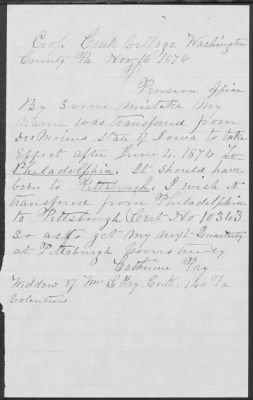 Cross Creek Village Washington
County Pa. Nov 16 1876
Pension Office
By Some Mistake My
Name was transfered from
Des Moines State of Iowa to take
Effect after June 4, 1876 to
Philadelphia. It Should have
ben to Pittsburgh. I wish it
transfered from Philadelphia
to Pittsburgh Cert No 10343
So as to get my next Quarterly
at Pittsburgh Yours truly
Catherine Ray
Widdow of Wm Ray
Volenteer